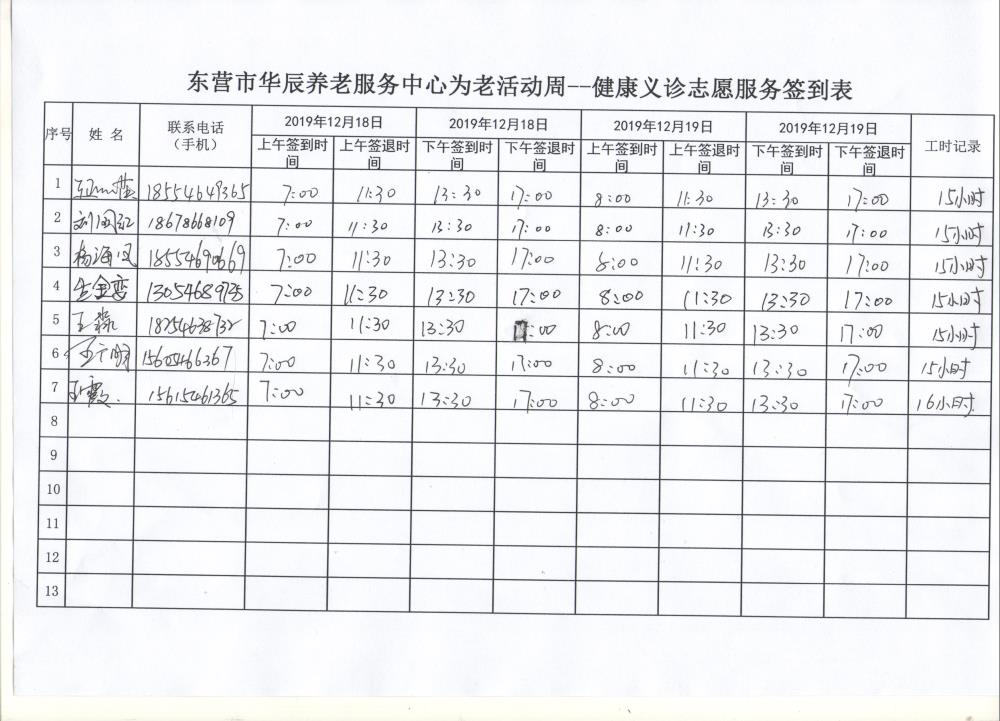 东营市华辰养老服务中心为老活动周--健康义诊志愿服务签到表
序号 姓 名 联系电话（手机） 2019年12月18日 2019年12月18日 2019年12月19日 2019年12月19日 工时记录
上午签到时间 上午签退时间 下午签到时间 下午签退时间 上午签到时间 上午签退时间 下午签到时间 下午签退时间
1 18554649365 7:00 11:30 13:30 17:00 8:00 11:30 13:30 17:00 15小时
2 刘国红 18678668109 7:00 11:30 13:30 17:00 8:00 11:30 13:30 17:00 15小时
3 杨海凤 18554690669 7:00 11:30 13:30 17:00 8:00 11:30 13:30 17:00 15小时
4 生金峦 7:00 11:30 13:30 17:00 8:00 11:30 13:30 17:00 15小时
5 王森 18254638732 7:00 11:30 13:30 :00 8:00 11:30 13:30 17:00 15小时
6 15605466367 7:00 11:30 13:30 17:00 8:00 11:30 13:30 17:00 15小时
7 王霞 15615461365 7:00 11:30 13:30 17:00 8:00 11:30 13:30 17:00 16小时
8
9
10
11
12
13